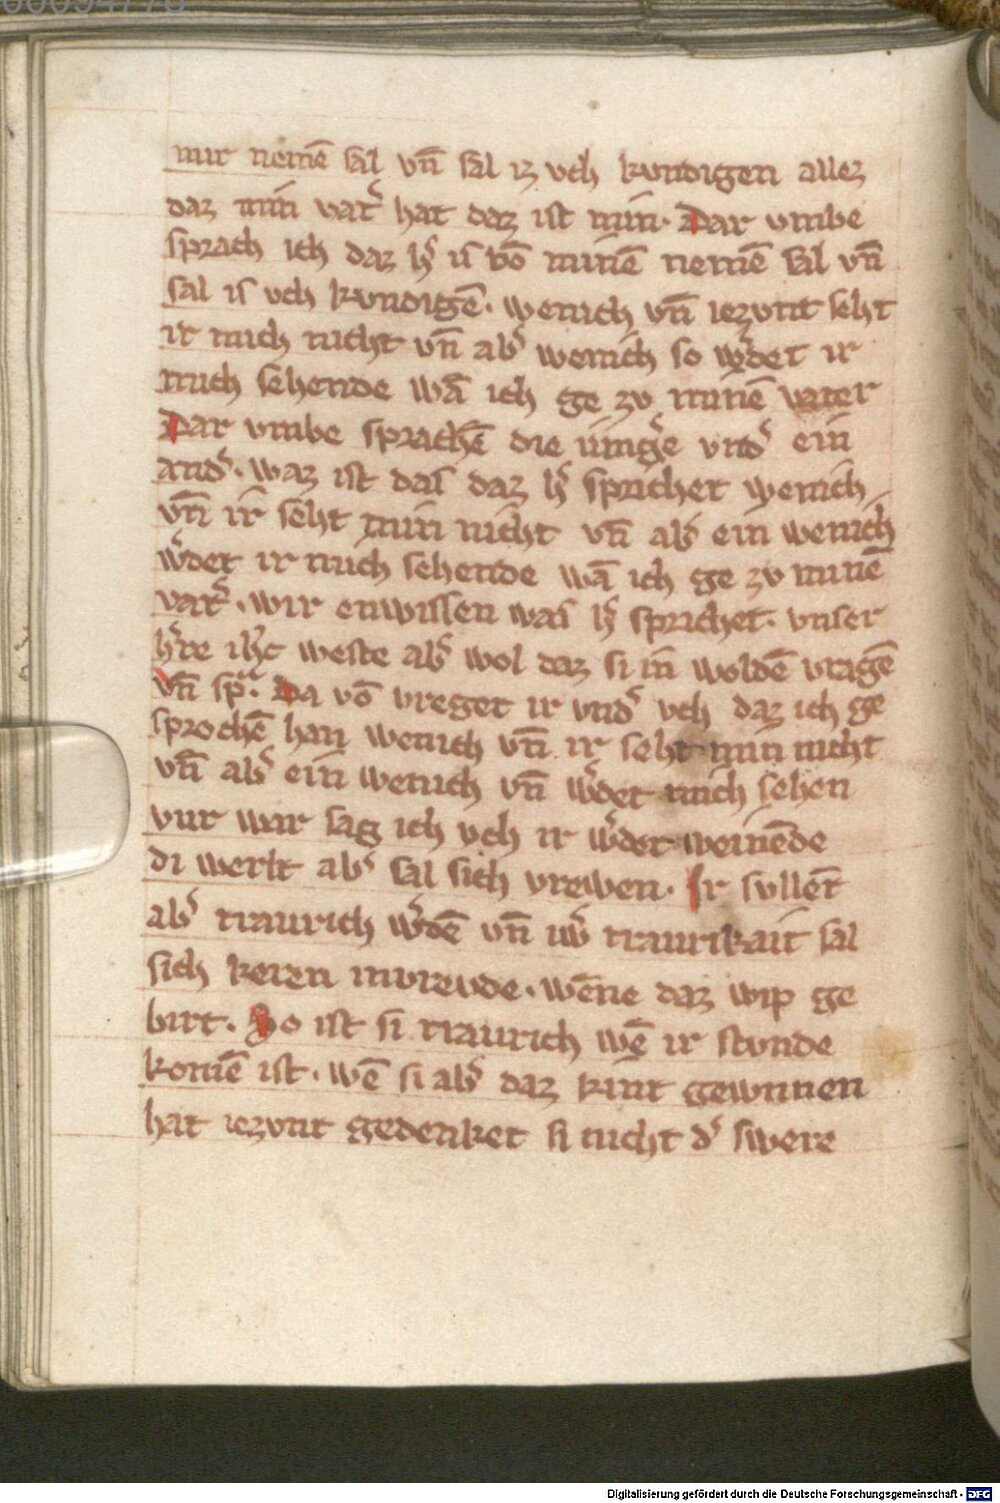 mir nemē sal vn̄ sal iz vch kvndigen allez
daz min vat᷑ hat daz ist min. Dar vmbe
sprach ich daz h᷑ is vō minē nemē sal vn̄
sal is vch kvndigē. wenich vn̄ iezvnt seht
ir mich nicht vn̄ ab᷑ wenich so w᷑det ir
mich sehende wā ich ge zv minē vater
Dar vmbe sprachē die iung᷑e vnd᷑ ein
and᷑. waz ist das daz h᷑ sprichet wenich
vn̄ ir seht min nicht vn̄ ab᷑ ein wenich
w᷑det ir mich sehende wā ich ge zv minē
vat᷑. wir enwissen was h᷑ sprichet. vnser
h᷑re ih᷑c weste ab᷑ wol daz si in woldē vragē
vn̄ sp᷑. Da vō vreget ir vnd᷑ vch daz ich ge
sprochē han wenich vn̄ ir seht min nicht
vn̄ ab᷑ ein wenich vn̄ w᷑det mich sehen
vur war sag ich vch ir w᷑det weinēde
di werlt ab᷑ sal sich vrewen. Ir sullēt
ab᷑ traurich w᷑dē vn̄ uw᷑ traurikait sal
sich keren invreude. wēne daz wip ge
birt. So ist si traurich wē ir stvnde
komē ist. wē si ab᷑ daz kint gewnnen
hat iezvnt gedenket si nicht d᷑ swere
Digitalisierung gefördert durch die Deutsche Forschungsgemeinschaft - DFG